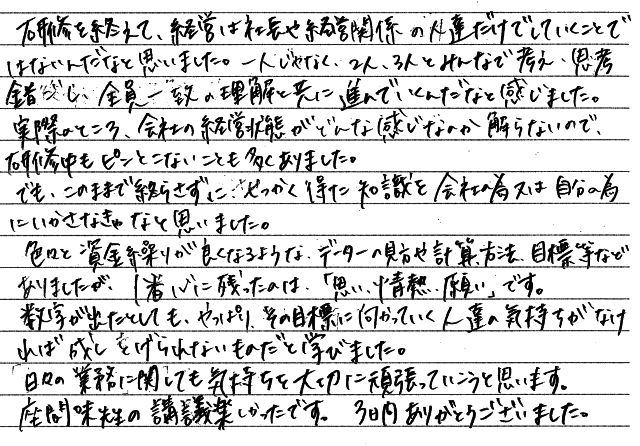 研修を終えて、経営は社長や経営関係の人達だけでしていくことで
はないんだなと思いました。一人じゃなく、2人、3人とみんなで考え、思考
錯誤し、全員一致の理解と共に進んでいくんだなと感じました。
実際のところ、会社の経営状態がどんな感じなのか解らないので、
研修中もピンとこないことも多くありました。
でも、このままで終らさずに、せっかく得た知識を会社の為又は自分の為
にいかさなきゃなと思いました。
色々と資金繰りが良くなるような、データーの見方や計算方法、目標等など
ありましたが、1番心に残ったのは、「思い、情熱、願い」です。
数字が出たとしても、やっぱり、その目標に向かっていく人達の気持ちがなけ
れば成しとげられないものだと学びました。
日々の業務に関しても気持ちを大切に頑張っていこうと思います。
座間味先生の講議楽しかったです。3日間ありがとうございました。